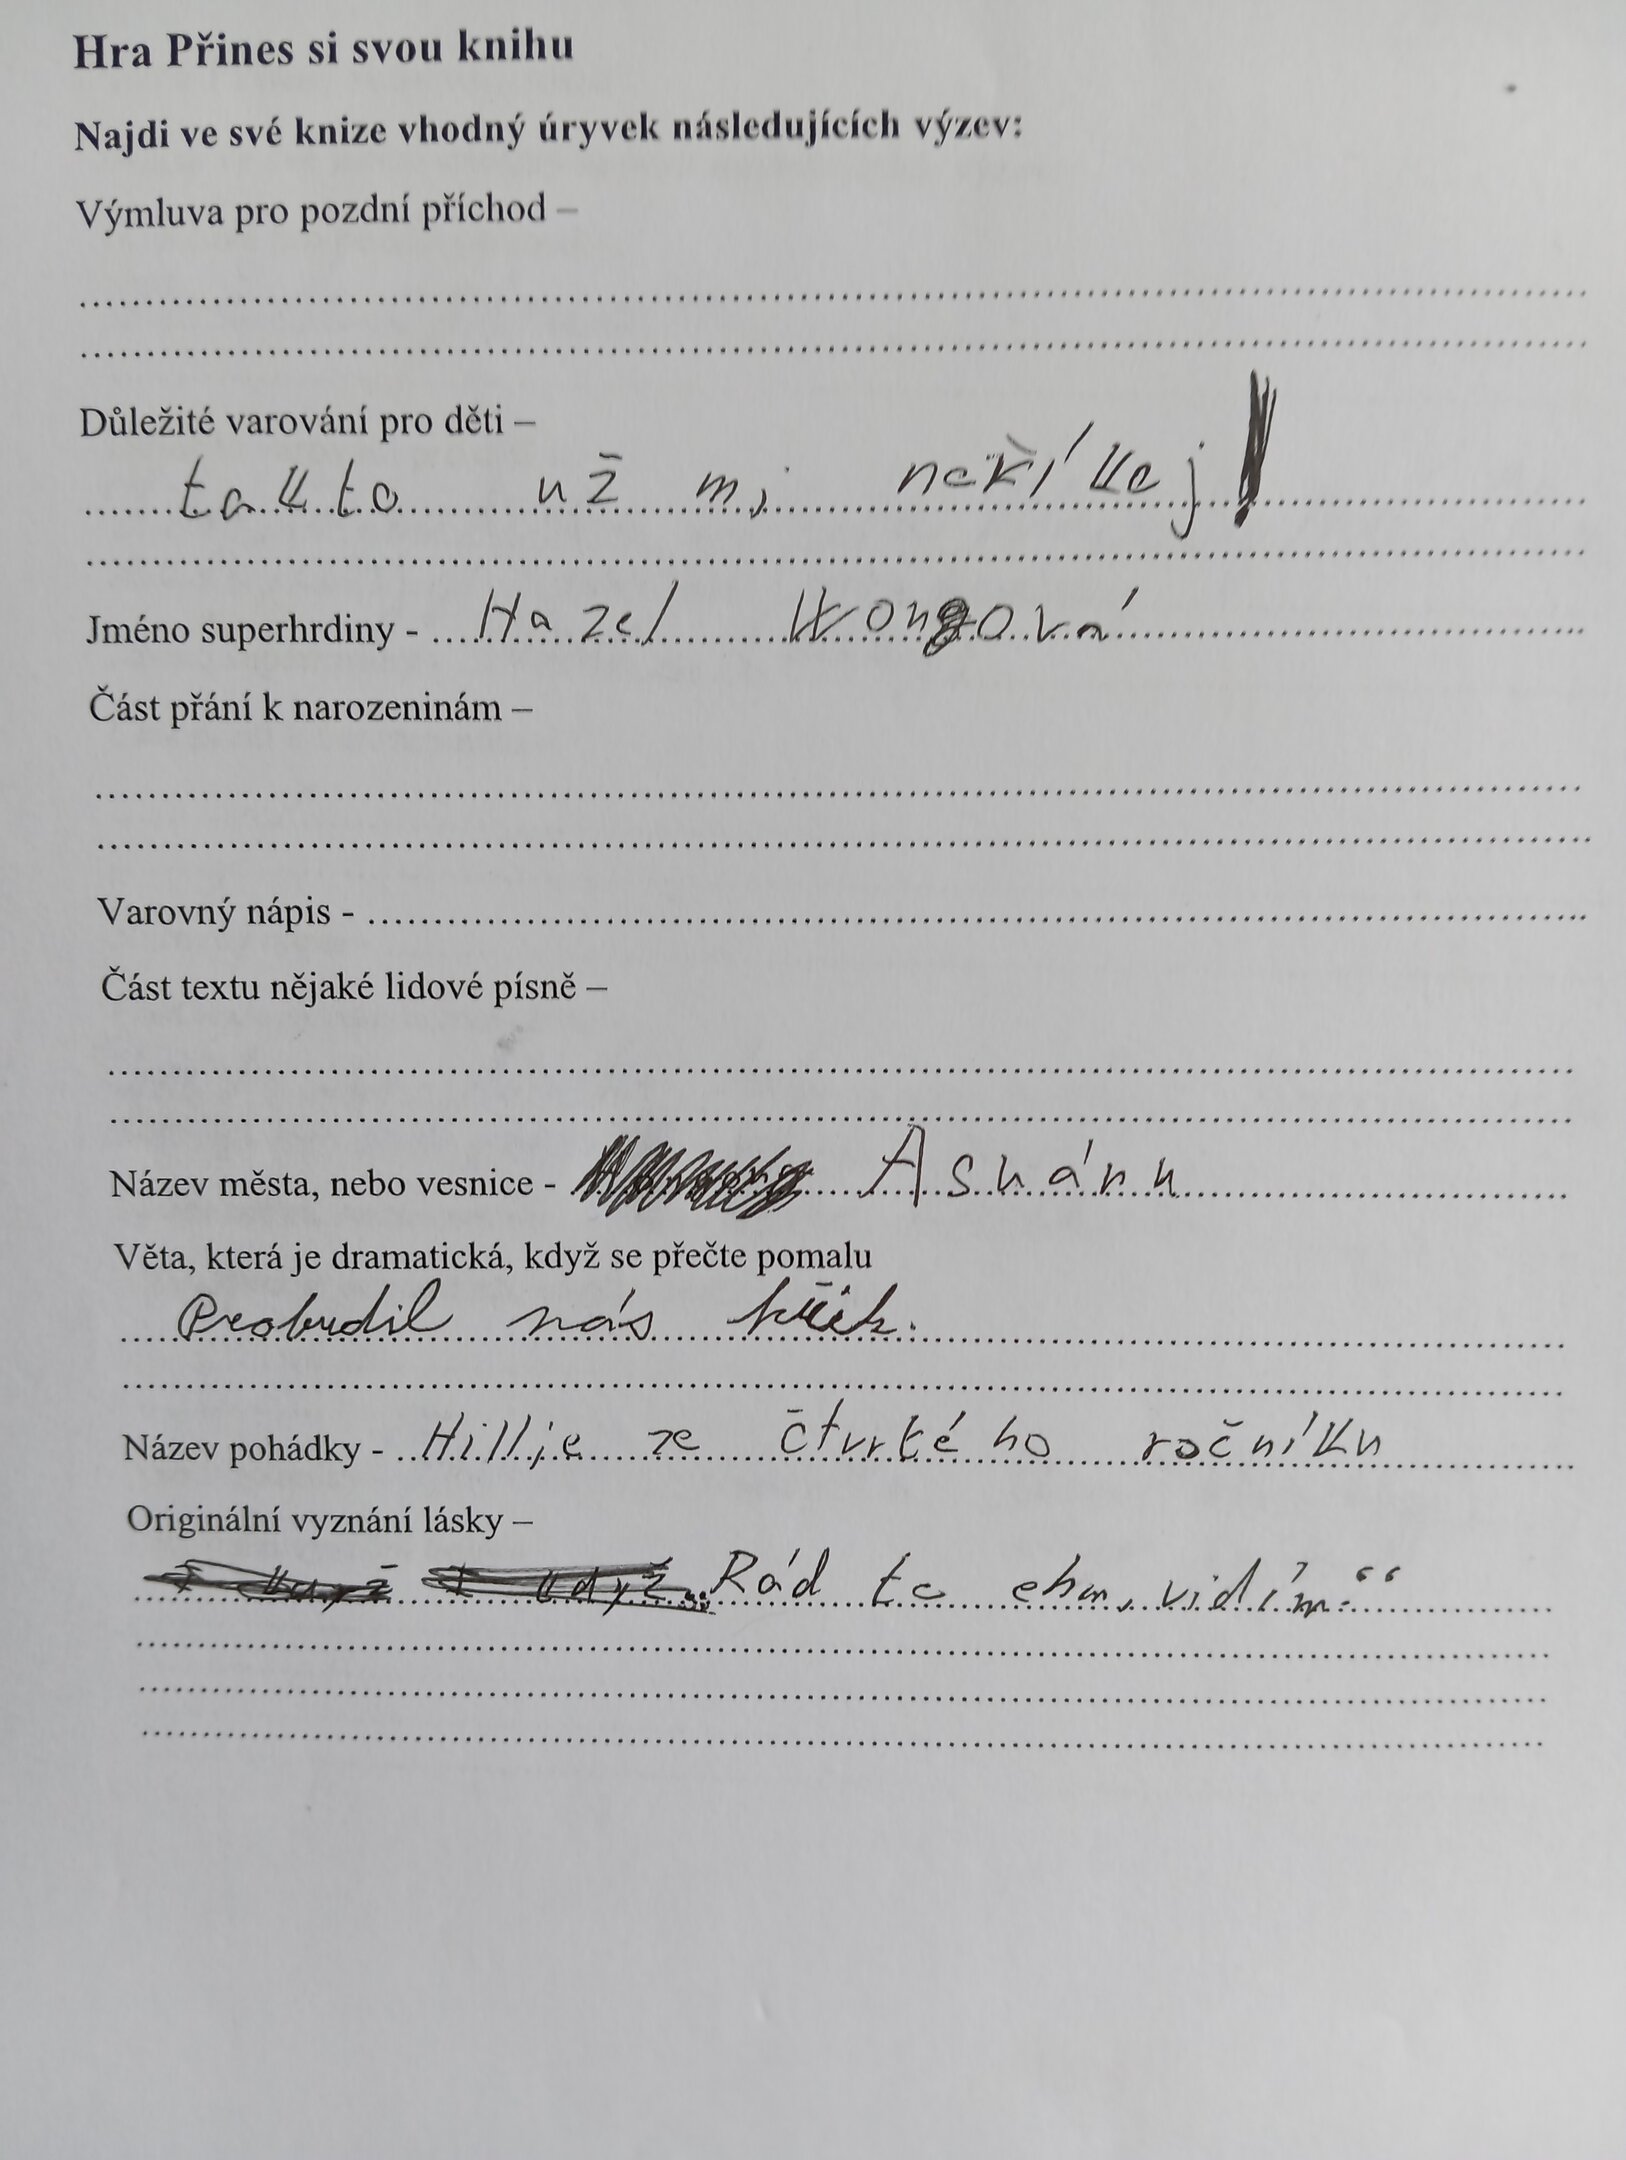 Hra Přines si svou knihu
Najdi ve své knize vhodný úryvek následujících výzev:
Výmluva pro pozdní příchod –
Důležité varování pro děti –
takto už mi neříkej!
Jméno superhrdiny - Hazel Wongová
Část přání k narozeninám –
Varovný nápis -
Část textu nějaké lidové písně –
Název města, nebo vesnice - Asuánu
Věta, která je dramatická, když se přečte pomalu
Probudil nás křik.
Název pohádky - Hillje ze čtvrtého ročníku
Originální vyznání lásky –
„Rád tě ehm, vidím.“